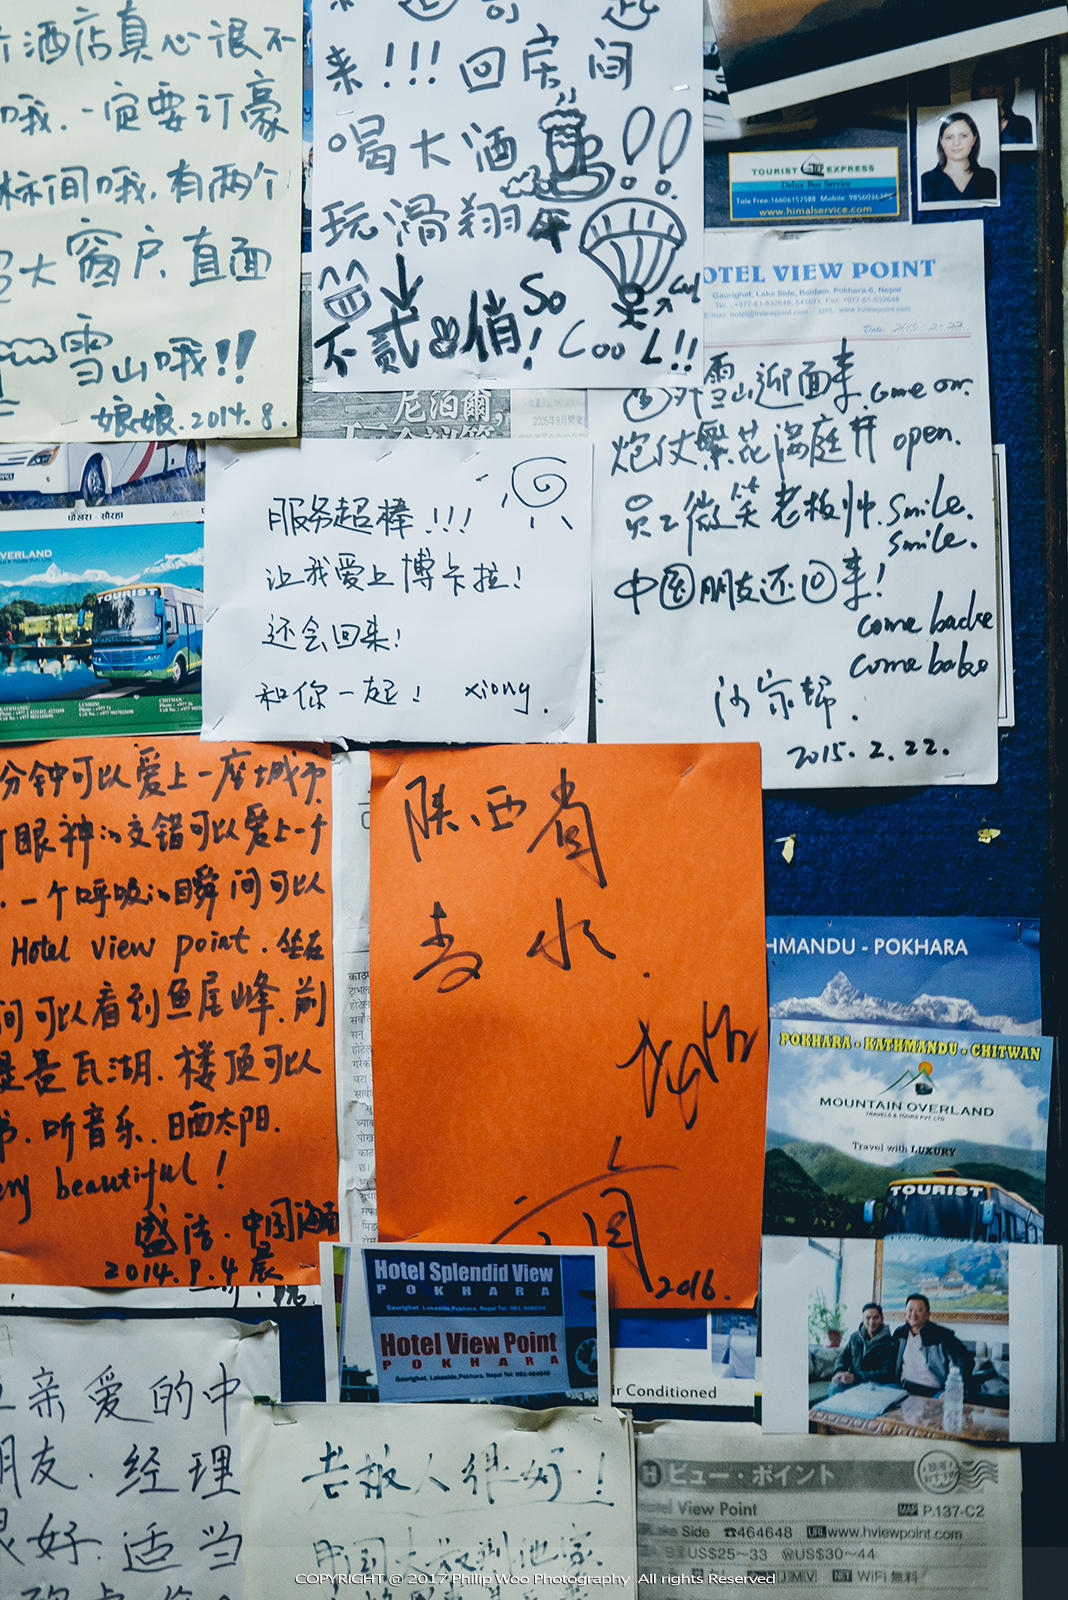 酒店真心很不
哦.一定要订豪
标间哦.有两个
大窗户.直面
雪山哦!!
娘娘.2014.8.
来!!!回房间
喝大酒!!
玩滑翔
So
不贰 俏! Cool!!
TOURIST EXPRESS
Delux Bus Service
www.himalservice.com
OTEL VIEW POINT
Gaurighat, Lake Side, Baidam, Pokhara-6, Nepal
Date:
雪山迎面来.come on.
炮仗繁花满庭开 open.
员工微笑老板帅.smile.
smile.
中国朋友还回来!
come backe
come bake
2015.2.22.
尼泊爾,
2005年8月開業
服务超棒!!!
让我爱上博卡拉!
还会回来!
和你一起! xiong.
पोखरा - सौराहा
OVERLAND
TOURIST
分钟可以爱上一座城市.
眼神的交错可以爱上一个
.一个呼吸的瞬间可以
Hotel view point.坐在
间可以看到鱼尾峰.前
是费瓦湖.楼顶可以
书.听音乐.晒太阳.
ery beautiful!
盛洁.中国海南
2014.9.4晨
陕西省
李水.
2016.
HMANDU - POKHARA
POKHARA - KATHMANDU - CHITWAN
MOUNTAIN OVERLAND
TRAVELS & TOURS PVT. LTD.
Travel with LUXURY
TOURIST
Hotel Splendid View
POKHARA
Gaurighat, Lakeside, Pokhara, Nepal
Hotel View Point
POKHARA
Gaurighat, Lakeside, Pokhara, Nepal
ir Conditioned
亲爱的中
朋友.经理
很好.适当
老板人很好!
中国大救到他家.
ビュー・ポイント
otel View Point MAP P.137-C2
Lake Side ☎464648 URL www.hviewpoint.com
US$25~33 US$30~44
NET WiFi 無料
COPYRIGHT @ 2017 Philip Woo Photography All rights Reserved